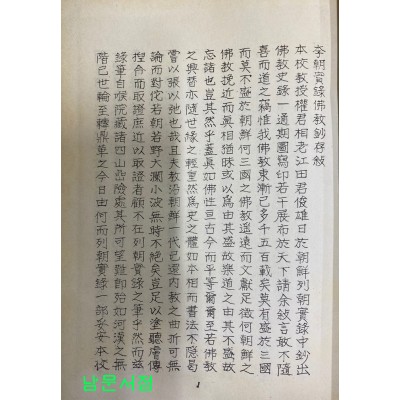 李朝實錄佛教鈔存敍
本校教授權君相老江田君俊雄日於朝鮮列朝實錄中鈔出
佛教史錄一通期圖寫印若干展布於天下請余敍言敢不隨
善而道之竊惟我佛教東漸已多千五百載矣莫有盛於三國
而莫不盛於朝鮮何三國之佛教遙遠而文獻足徵何朝鮮之
佛教挽近而眞相猶昧或以爲由其盛故樂道之由其不盛故
忘諸也豈其然乎蓋眞如佛性亘古今而平等爾爾至若佛教
之興替亦隨世緣之輕重然爲史之體如本相而書法不隱曷
嘗以張以弛也哉且夫教沿朝鮮一代已還内教之曲折可無
論而對佗若朝若野大瀾小波無時不絕矣豈足以塗聽膚傳
揑合而取證庶近以取證者顧不在列朝實錄之筆乎然而玆
錄筆自喉院藏諸四山嵒險處其所可望難卽殆如河漢之無
階已世輪至轉鼎革之今日由何而列朝實錄一部妥妥本校
1
남문서점